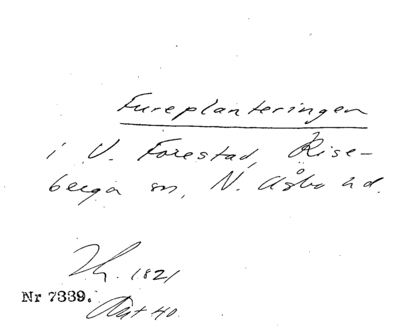 Fureplanteringen
i V. Forestad, Rise-
berga sn, N. Åsbo hd.
1821
Nr 7339.
40.